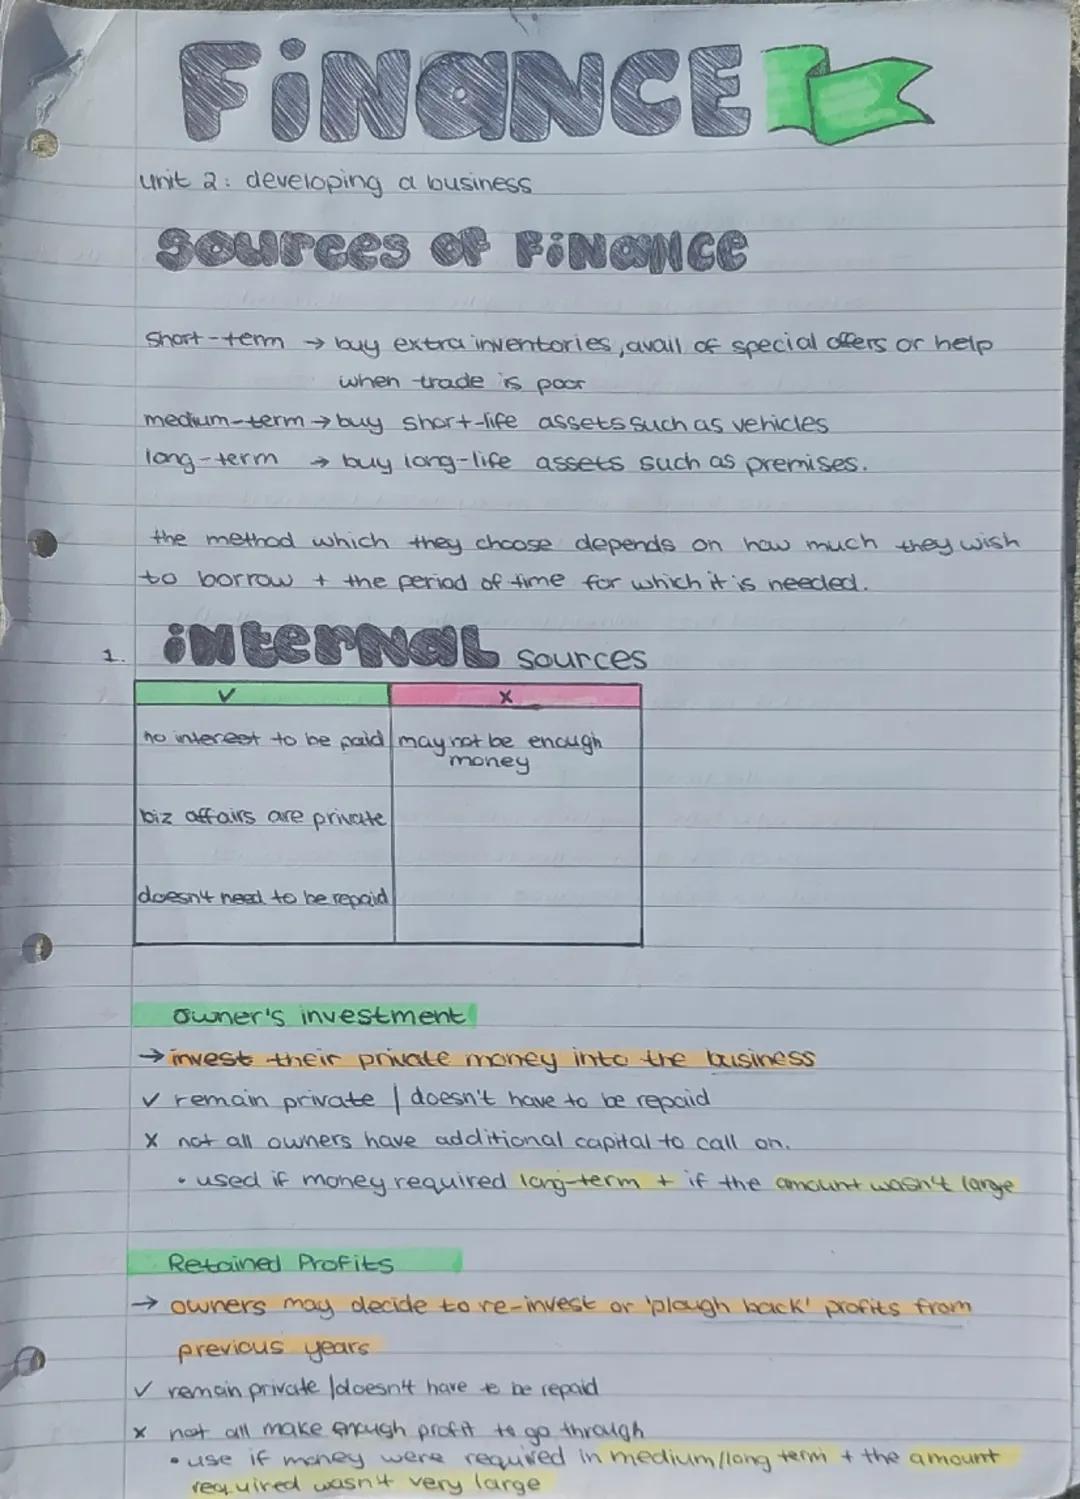 FINANCE
unit 2: developing a business
sources of FINANCE
short-term → buy extra inventories, avail of special offers or help
when trade is poor
medium-term → buy short-life assets such as vehicles
long-term → buy long-life assets such as premises.
the method which they choose depends on how much they wish
to borrow + the period of time for which it is needed.
1. iNterNaL sources
✓ x
no interest to be paid may not be enough
money
biz affairs are private
doesn't need to be repaid
owner's investment
→ invest their private money into the business
✓ remain private / doesn't have to be repaid
x not all owners have additional capital to call on.
• used if money required long-term + if the amount wasn't large
Retained Profits
→ owners may decide to re-invest or 'plough back' profits from
previous years
✓ remain private / doesn't have to be repaid
x not all make enough profit to go through
• use if money were required in medium/long term + the amount
required wasn't very large